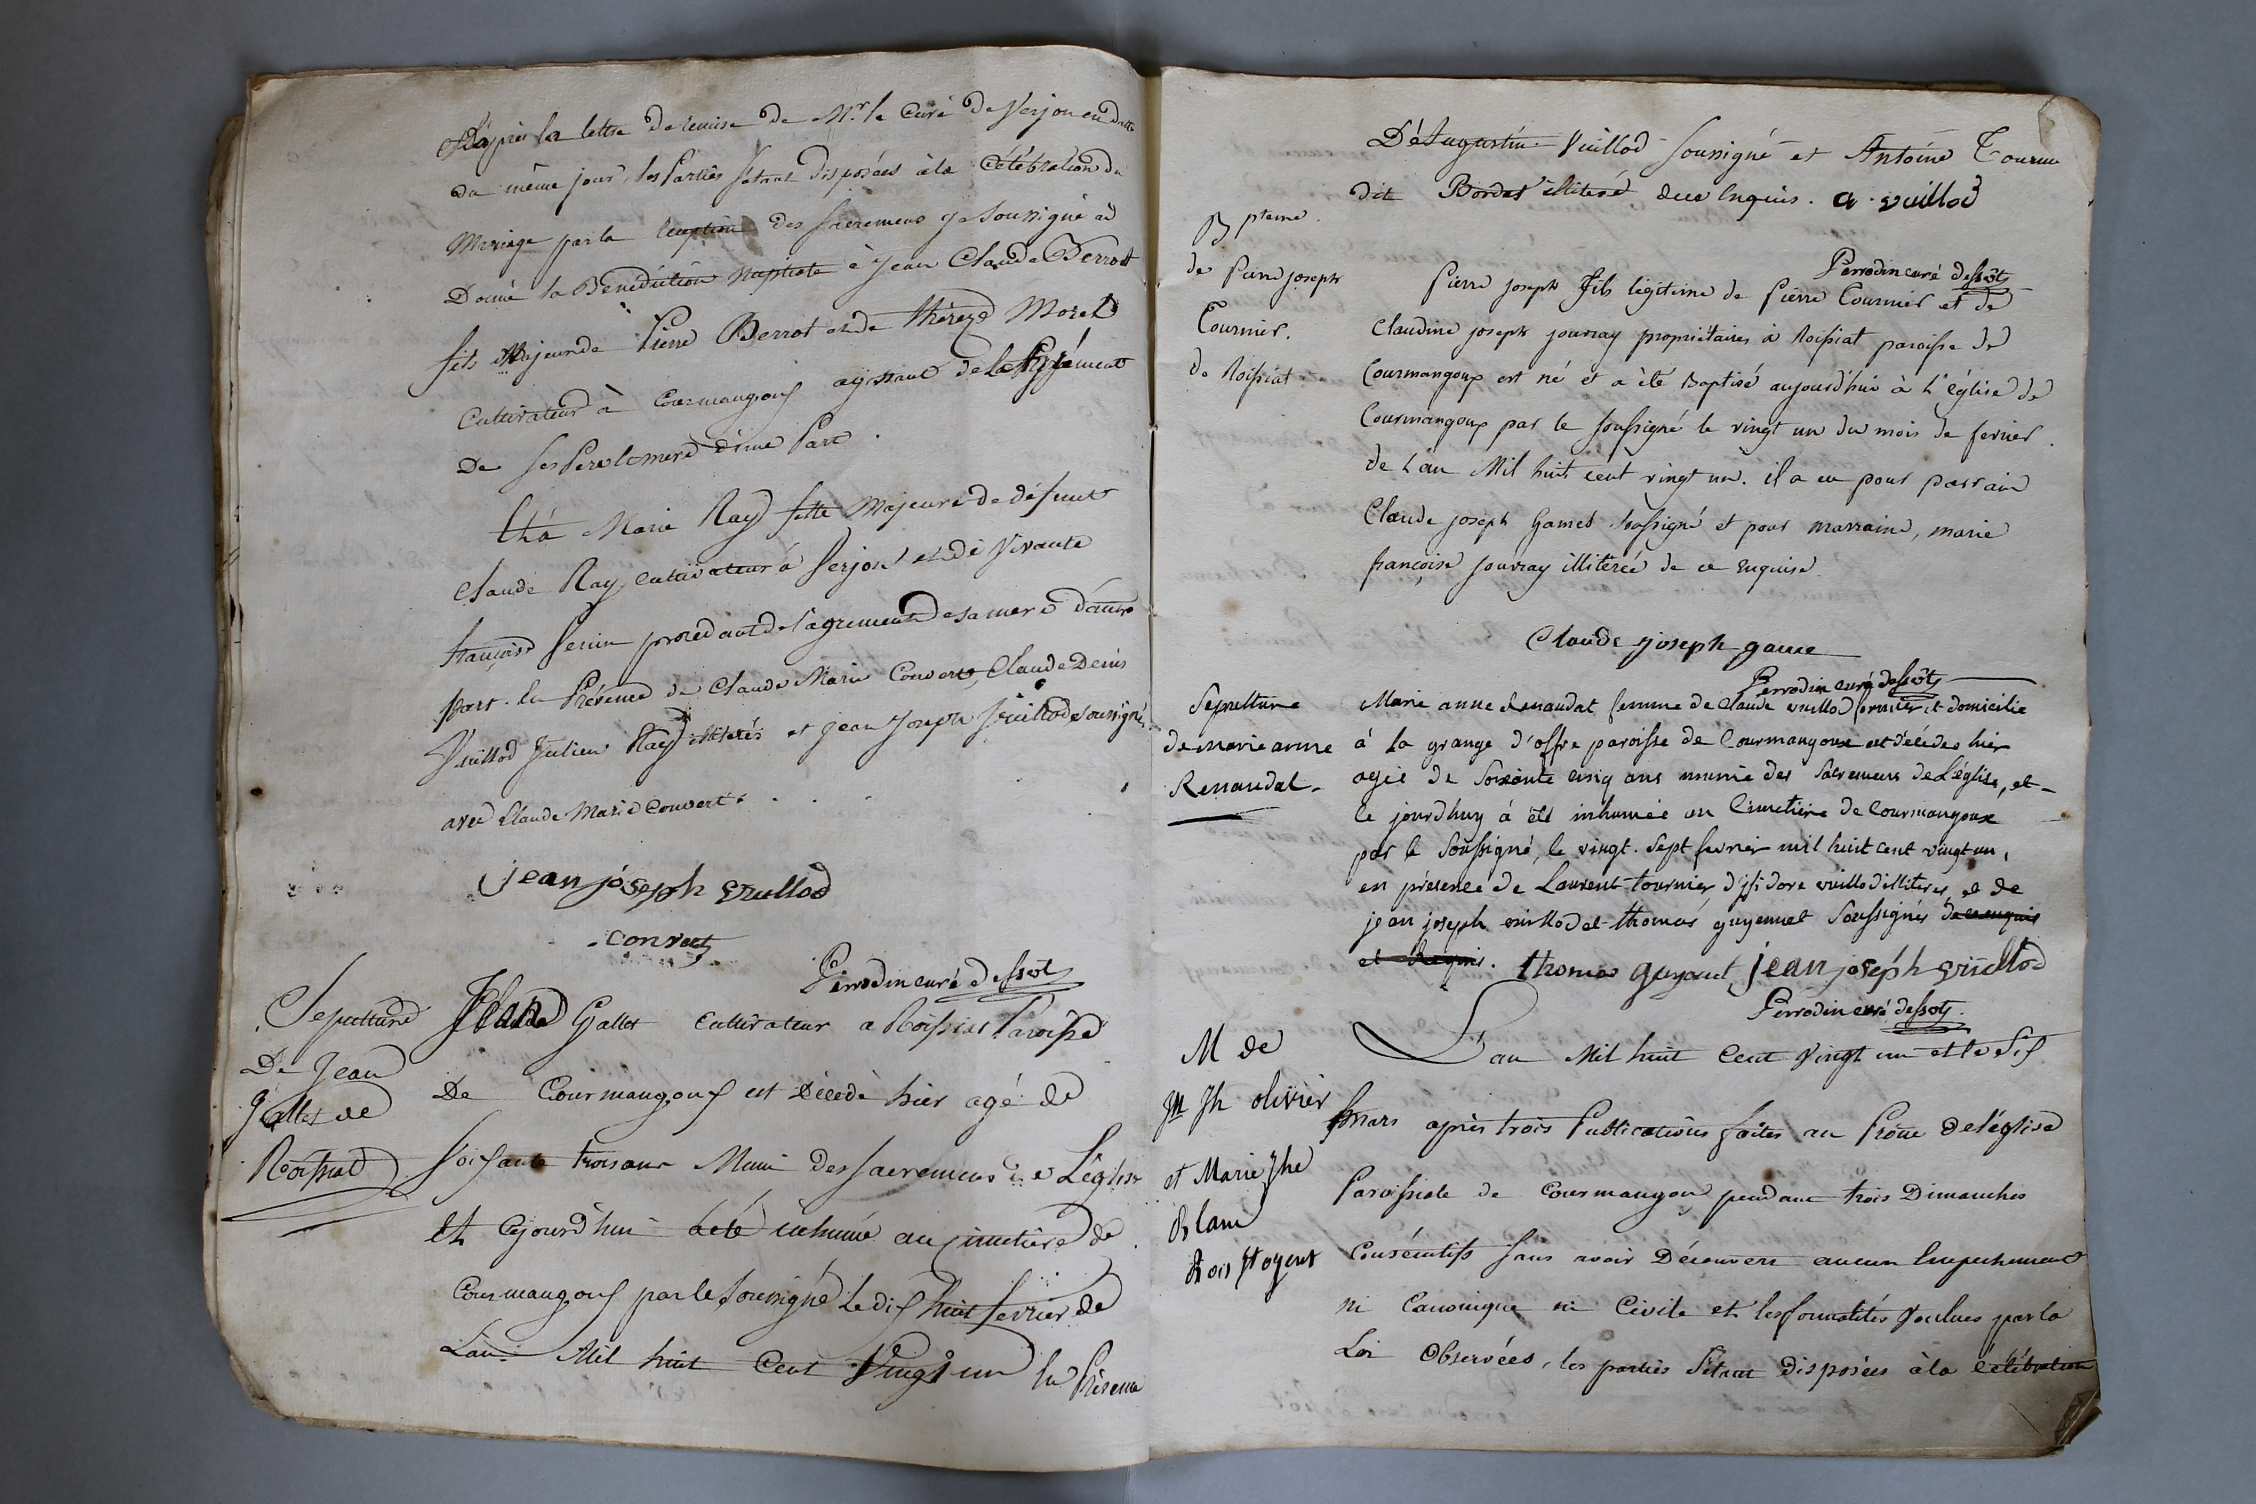 D'après la lettre de remise de Mr. le Curé de Verjon en datte
du même jour, les Parties s'étant disposées à la Célébration du
Mariage par la reception des sacremens je soussigné ai
Donné la Bénédiction Nuptiale à Jean Claude Berrod
fils Majeur de Pierre Berrod et de thérèze Morel
Cultivateur à Courmangoux agissant de l'Agrément
De ses Pere et mere d'une Part.
Et à Marie Ray fille Majeure de défunt
Claude Ray, cultivateur à Verjon et de Vivante
françoise procedant de l'agrement de sa mere d'autre
part. En Présence de Claude Marie Convert, Claude Denis
Vuillod Julien Ray illiterés et jean Joseph Vuillod soussigné
avec Claude Marie Convert.
jean joseph vuillod
Convert
Perrodin curé dessót
Sepulture
De Jean
Gallet de
Roissiat
Jean Gallet Cultivateur a Roissiat Paroisse
De Courmangoux est Décedé hier agé de
soixante trois ans Muni des sacremens de L'église
Et cejourd'hui a été inhumé au cimetière de
Courmangoux par le soussigné Le dix huit fevrier de
L'an Mil huit Cent Vingt un En Présence
D'Augustin Vuillod soussigné et Antoine Tournier
dit Bordat illiteré de ce Enquis. a. vuillod
Perrodin curé dessót
Bpteme
de Pierre joseph
Tournier.
de Roissiat
Pierre joseph fils légitime de Pierre Tournier et de
Claudine joseph jouvray propriétaires à Roissiat paroisse de
Courmangoux est né et a été Baptisé aujourd'hui à L'église de
Courmangoux par le soussigné le vingt un du mois de fevrier
de L'an Mil huit cent vingt un. il a eu pour parrain
Claude joseph Gamet soussigné et pour marraine, marie
françoise jouvray illiterée de ce enquise.
Claude joseph game
Perrodin curé dessót
Sepulture
de marie anne
Renaudat
Marie anne Renaudat femme de Claude vuillod fermier et domicilié
à la grange d'offre paroisse de Courmangoux est décédée hier
agée de soixante cinq ans munie des Sacremens de L'église, et
ce jourdhuy à été inhumée au Cimetière de Courmangoux
par le Soussigné, le vingt-sept fevrier mil huit cent vingt un,
en présence de Laurent tournier, d'isidore vuillod illiterés, et de
jean joseph vuillod et thomas guyennet Soussignés de ce enquis
et Requis. thomas guyenet jean joseph vuillod
Perrodin curé dessót.
M de
jn jh olivier
et Marie jhe
Blanc
L'an Mil huit Cent Vingt un et le Six
Mars après trois Publications faites au Prône de l'église
Paroissiale de Courmangoux pendant trois Dimanches
Consécutifs sans avoir Découvert aucun Empechement
ni Canonique ni Civile et les formalités Voulues par la
Loi Observées, les parties S'étant disposées à la célébration